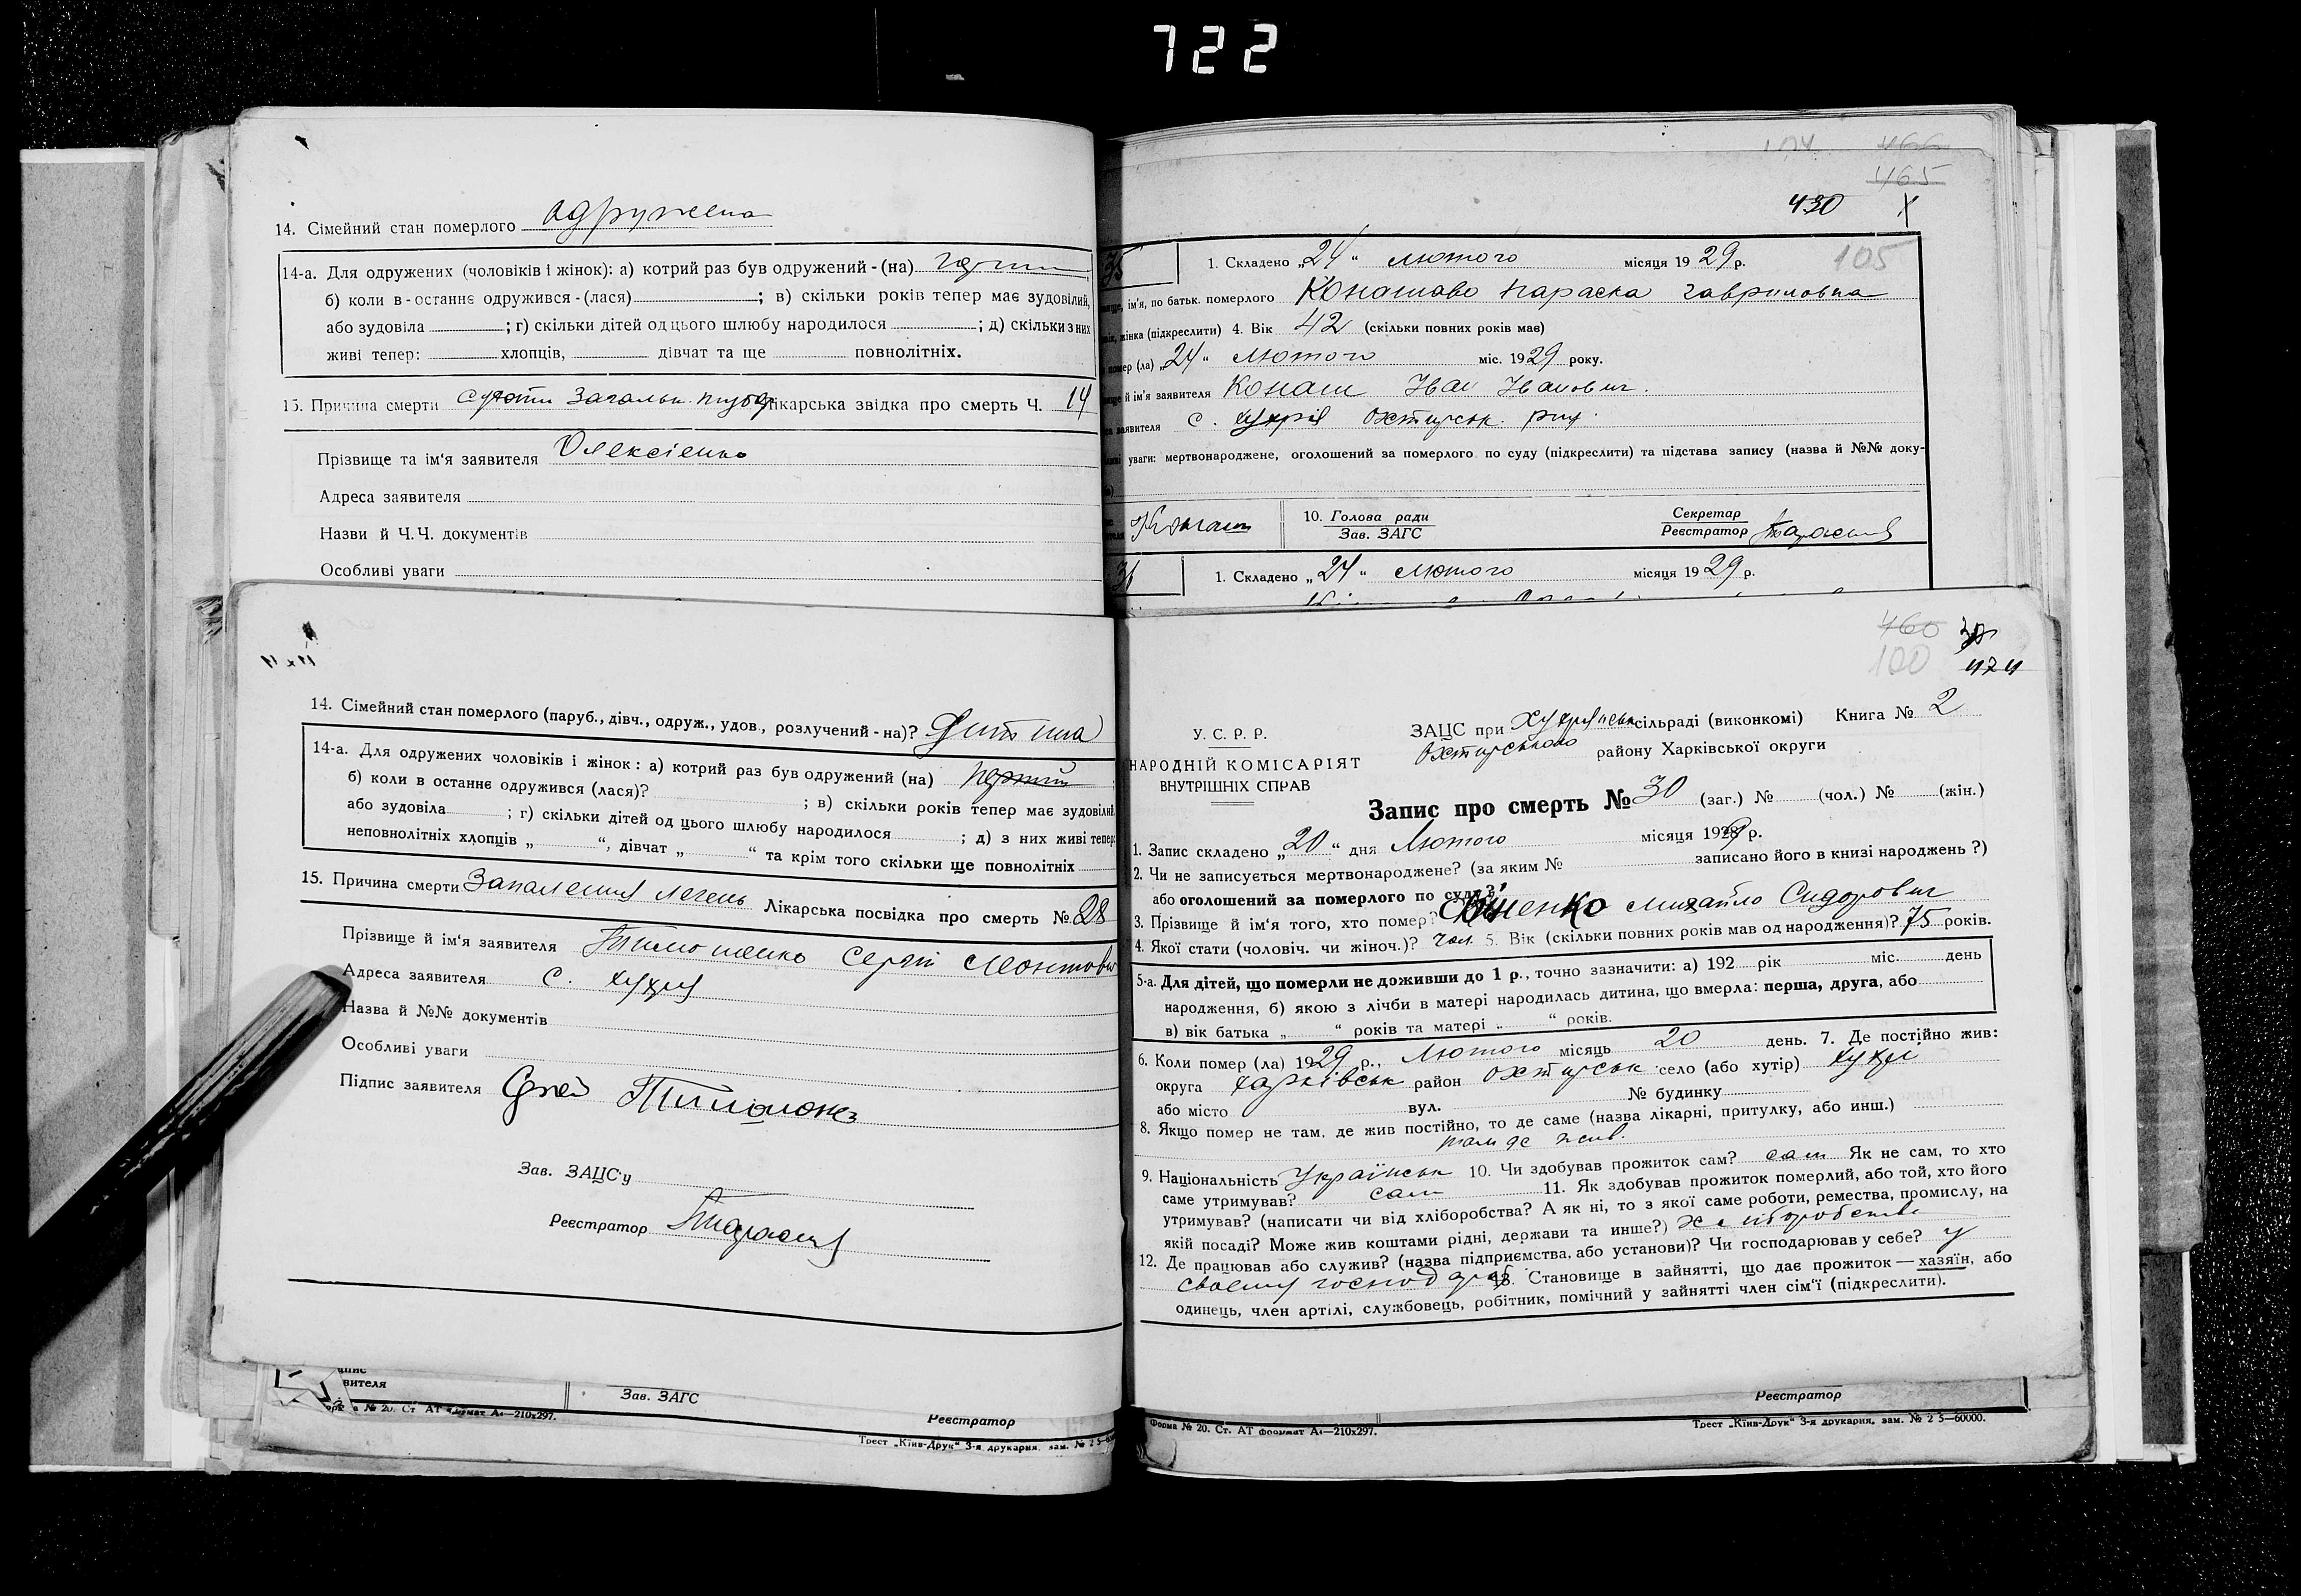 722
14. Сімейний стан померлого одружена
14-а. Для одружених (чоловіків і жінок): а) котрий раз був одружений - (на)
б) коли в - останнє одружився - (лася) ; в) скільки років тепер має зудовілий,
або зудовіла ; г) скільки дітей од цього шлюбу народилося ; д) скільки з них
живі тепер: хлопців, дівчат та ще повнолітніх.
15. Причина смерти лікарська звідка про смерть Ч. 14
Прізвище та ім'я заявителя Олексієнко
Адреса заявителя
Назви й Ч.Ч. документів
Особливі уваги
14. Сімейний стан померлого (паруб., дівч., одруж., удов., розлучений - на)? Дитина
14-а. Для одружених чоловіків і жінок: а) котрий раз був одружений (на)
б) коли в останнє одружився (лася)? ; в) скільки років тепер має зудовілий,
або зудовіла ; г) скільки дітей од цього шлюбу народилося ; д) з них живі тепер:
неповнолітніх хлопців „ “, дівчат „ “ та крім того скільки ще повнолітніх
15. Причина смерти Запалення легень Лікарська посвідка про смерть № 28
Прізвище й ім'я заявителя Тимошенко Сергій Леонтович
Адреса заявителя с. Хухря
Назва й №№ документів
Особливі уваги
Підпис заявителя
Зав. ЗАЦС'у
Реєстратор
вителя
Зав. ЗАГС
Реєстратор
№ 20. Ст. АТ формат А4—210х297.
Трест „Київ-Друк“ 3-я друкарня, зам. № 2 5
466
465
430
105
35 1. Складено „24“ лютого місяця 1929 р.
ім'я, по батьк. померлого Конашова Параска Гавриловна
жінка (підкреслити) 4. Вік 42 (скільки повних років має)
помер (ла) „24“ Лютого міс. 1929 року.
й ім'я заявителя Конаш Іван Іванович.
заявителя с. Хухря Охтирськ. рну.
уваги: мертвонароджене, оголошений за померлого по суду (підкреслити) та підстава запису (назва й №№ доку-
Конаш 10. Голова ради Секретар
Зав. ЗАГС Реєстратор
36 1. Складено „24“ лютого місяця 1929 р.
460
100
424
У. С. Р. Р.
НАРОДНІЙ КОМІСАРІЯТ
ВНУТРІШНІХ СПРАВ
ЗАЦС при Хухрянськ сільраді (виконкомі) Книга № 2
Охтирського району Харківської округи
Запис про смерть № 30 (заг.) № (чол.) № (жін.)
1. Запис складено „20“ дня Лютого місяця 1929 р.
2. Чи не записується мертвонароджене? (за яким № записано його в книзі народжень?)
або оголошений за померлого по суду?
3. Прізвище й ім'я того, хто помер? Михайло Сидорович
4. Якої стати (чоловіч. чи жіноч.)? чол. 5. Вік (скільки повних років мав од народження)? 75 років.
5-а. Для дітей, що померли не доживши до 1 р., точно зазначити: а) 192 рік міс. день
народження, б) якою з лічби в матері народилась дитина, що вмерла: перша, друга, або
в) вік батька „ “ років та матері „ “ років.
6. Коли помер (ла) 1929 р., Лютого місяць 20 день. 7. Де постійно жив:
округа Харківськ район Охтирськ село (або хутір) Хухрі
або місто вул. № будинку
8. Якщо помер не там, де жив постійно, то де саме (назва лікарні, притулку, або инш.)
там де жив.
9. Національність Українськ 10. Чи здобував прожиток сам? сам Як не сам, то хто
саме утримував? сам 11. Як здобував прожиток померлий, або той, хто його
утримував? (написати чи від хліборобства? А як ні, то з якої саме роботи, ремества, промислу, на
якій посаді? Може жив коштами рідні, держави та инше?) Хліборобства
12. Де працював або служив? (назва підприємства, або установи)? Чи господарював у себе? у
своему господарс. 13. Становище в зайнятті, що дає прожиток — хазяїн, або
одинець, член артілі, службовець, робітник, помічний у зайнятті член сім'ї (підкреслити).
Реєстратор
Форма № 20. Ст. АТ формат А4—210х297.
Трест „Київ-Друк“ 3-я друкарня, зам. № 2 5—60000.